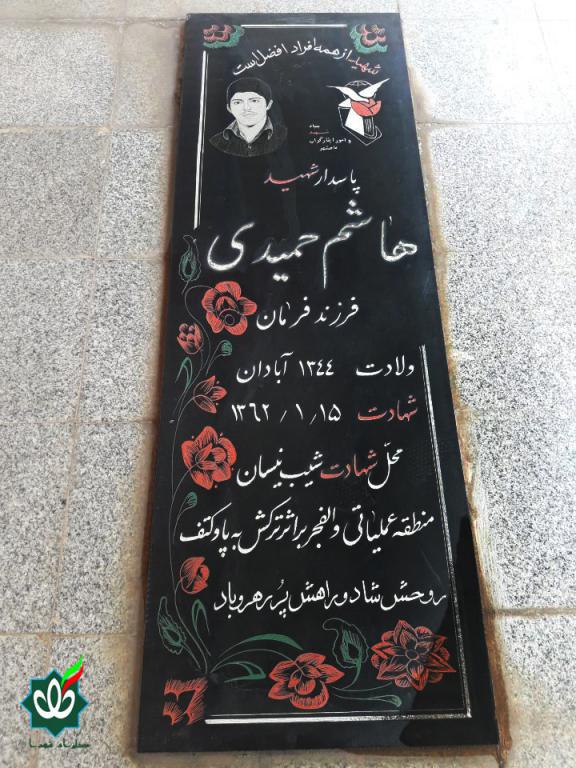 شهید از همه افراد افضل است
بنیاد
شهید
و امور ایثارگران
ماهشهر
پاسدار شهید
هاشم حمیدی
فرزند فرمان
ولادت ۱۳۴۴ آبادان
شهادت ۱۵ / ۱ / ۱۳۶۲
محل شهادت شیب نیسان
منطقه عملیاتی والفجر بر اثر ترکش به پا و کتف
روحش شاد و راهش پُر رهرو باد